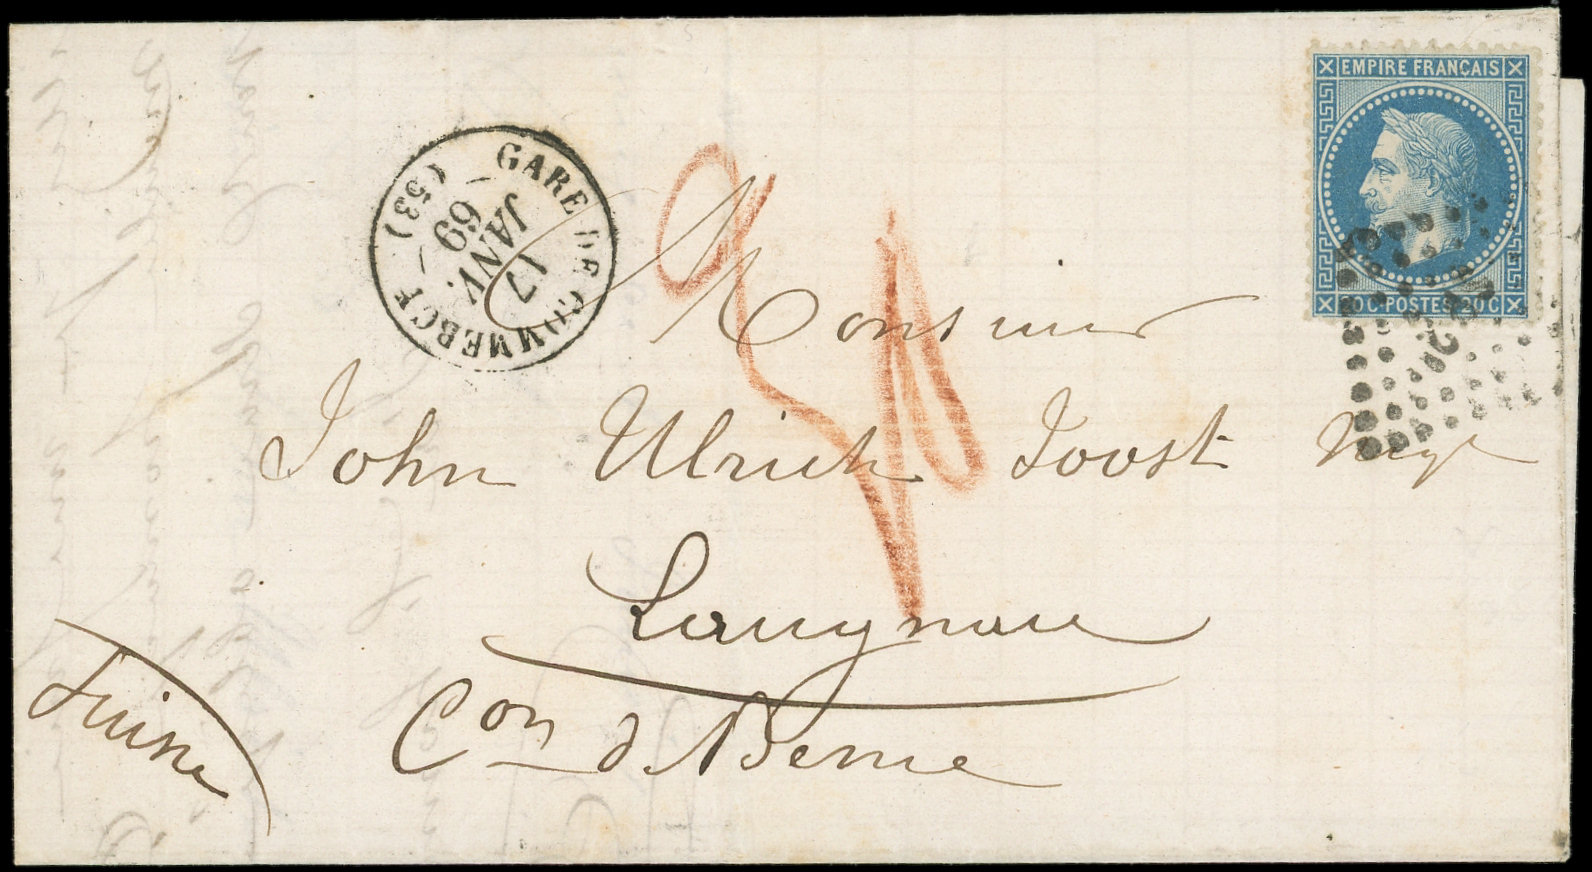 EMPIRE FRANÇAIS
20 C · POSTES · 20 C
GARE DE COMMERCY (53)
17
JANV.
69
Monsieur
John Ulrich Joost
Langnau
Con d. Berne
Suisse